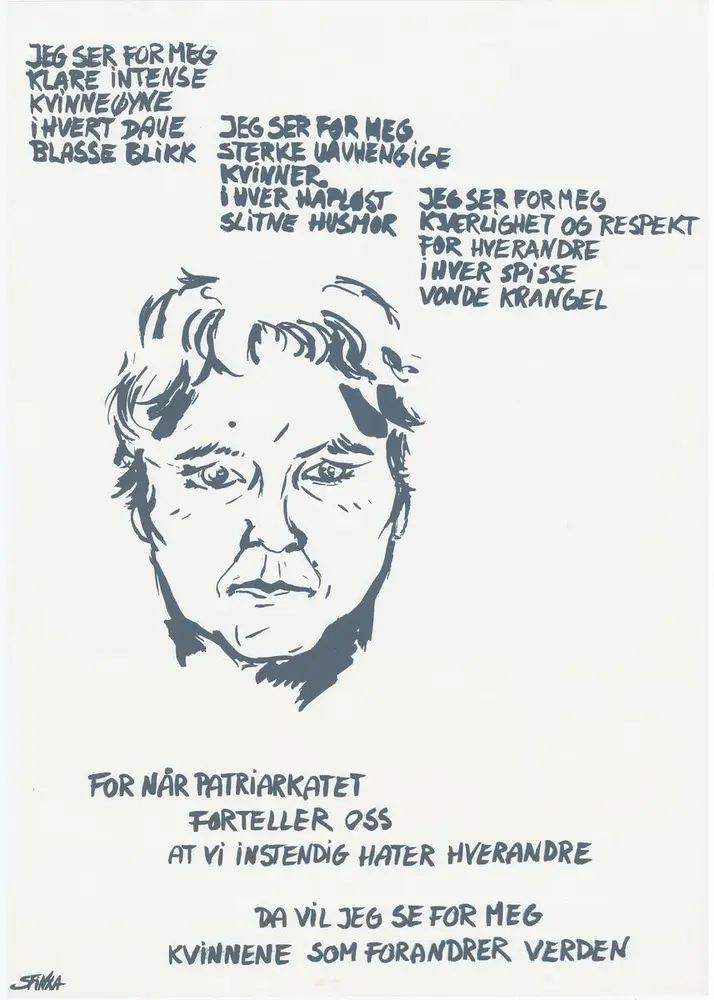 JEG SER FOR MEG
KLARE INTENSE
KVINNEØYNE
I HVERT DAUE
BLASSE BLIKK
JEG SER FOR MEG
STERKE UAVHENGIGE
KVINNER
I HVER HÅPLØST
SLITNE HUSMOR
JEG SER FOR MEG
KJÆRLIGHET OG RESPEKT
FOR HVERANDRE
I HVER SPISSE
VONDE KRANGEL
FOR NÅR PATRIARKATET
FORTELLER OSS
AT VI INSTENDIG HATER HVERANDRE
DA VIL JEG SE FOR MEG
KVINNENE SOM FORANDRER VERDEN